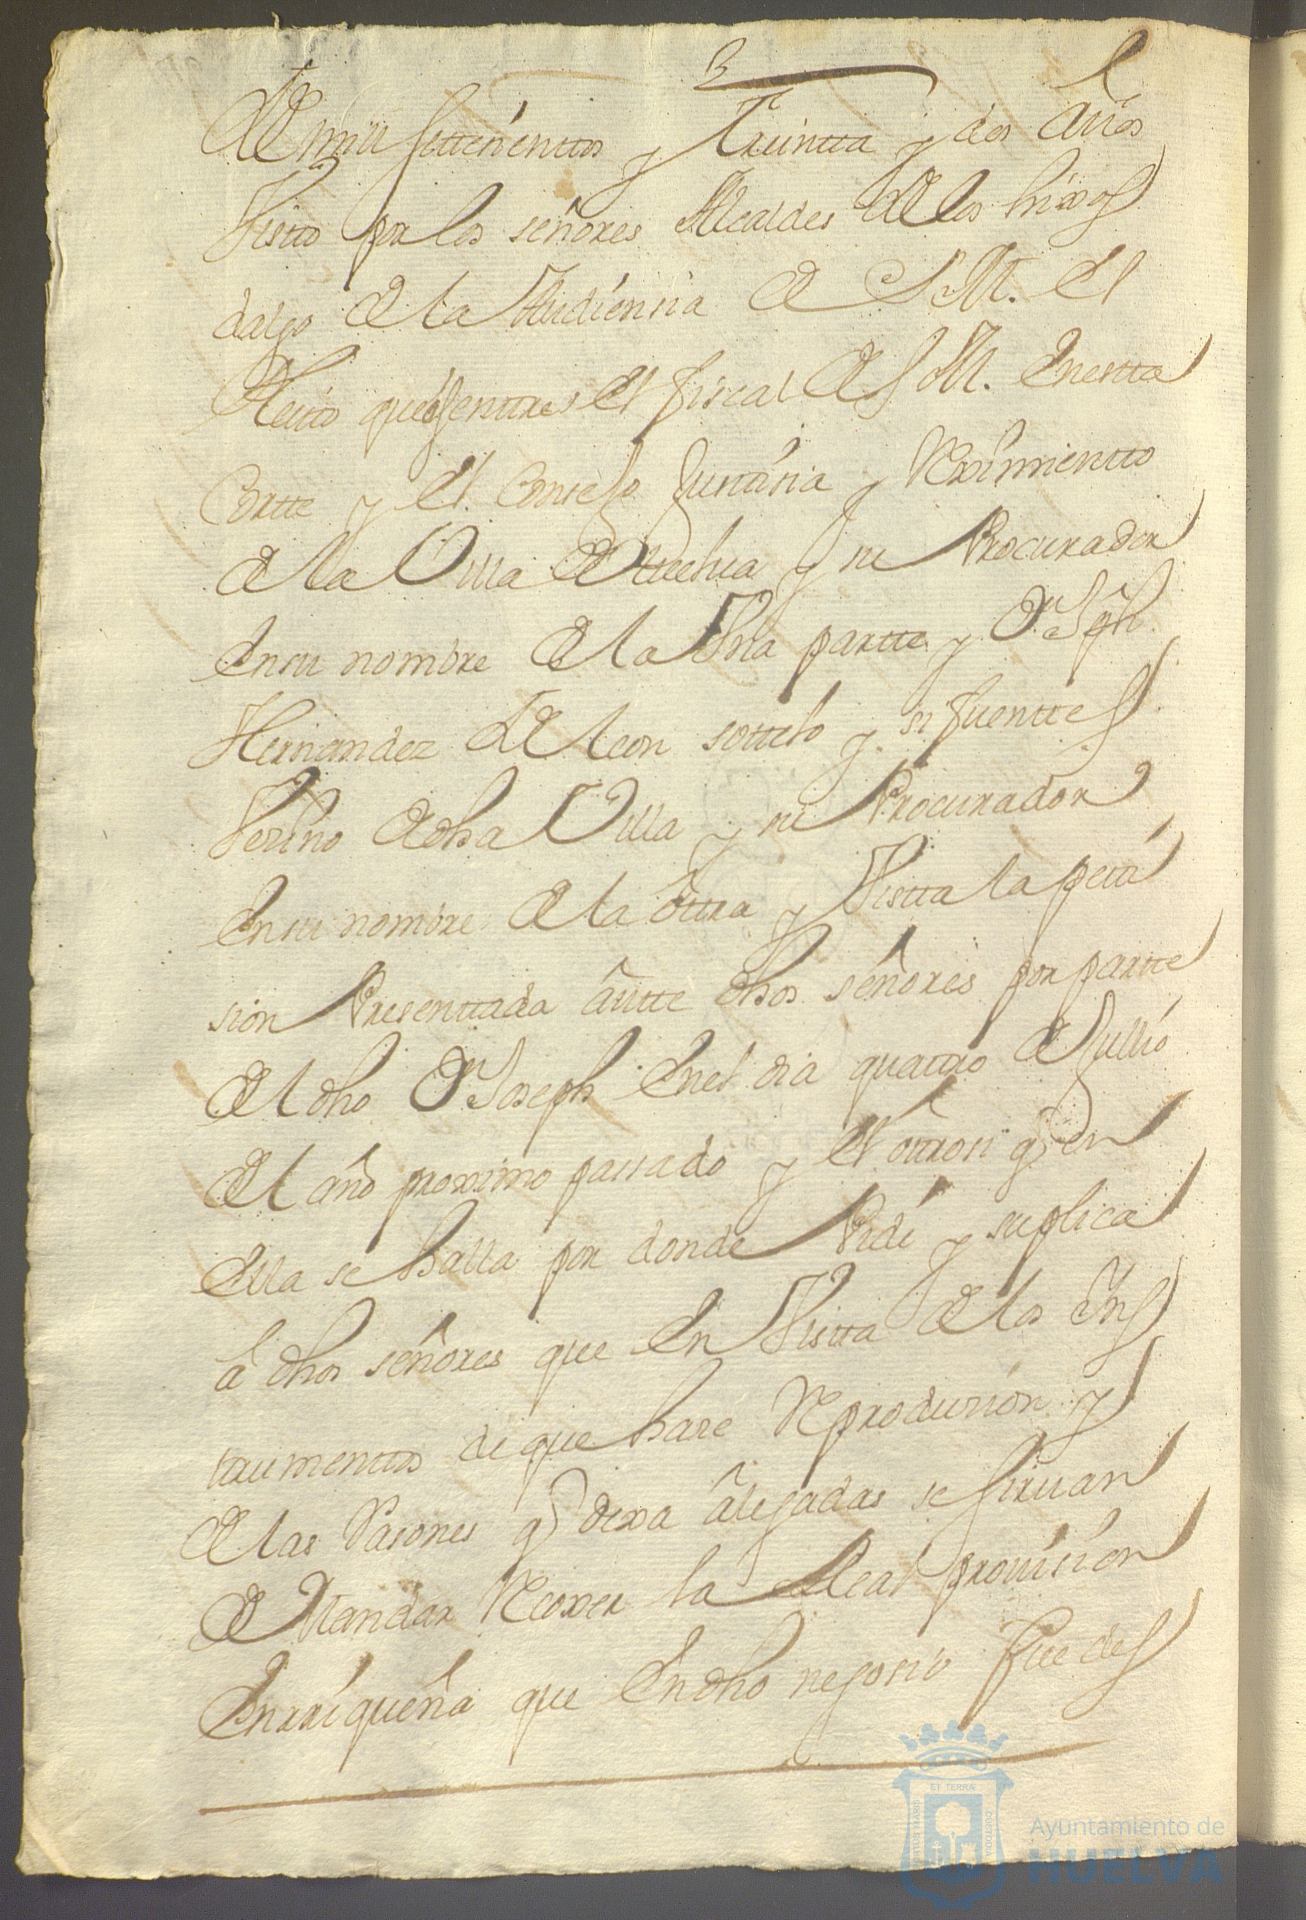 de mill settezienttos y Treintta y dos años
Visto por los señores Alcaldes de los hixos
dalgo de la Audiencia de S. M. el
Pleito que es entre el fiscal de S M. en estta
Cortte y el Consejo Justicia y Reximientto
de la Villa de Huelua y su Procurador
en su nombre de la Vna partte y Dn. Jph.
Hernandez de leon sottelo y sifuenttes
Vezino de dha Villa y su Procurador
en su nombre de la ottra y Vistta la peti
sion Presenttada antte dhos señores por partte
del dho Dn Joseph en el dia quattro de Jullio
del año proximo passado y el ottrosi q en
ella se halla por donde Pide y suplica
a dhos señores que en Vistta de los Ins
trumenttos de que hase Reproducion y
de las Rasones q dexa alegadas se siruan
de Mandar Recoxer la Real prouision
Enrriqueña que en dho negosio fue des
ET TERRÆ
Ayuntamiento de
HUELVA